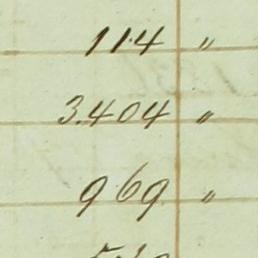 114 "
3.404 "
969 "